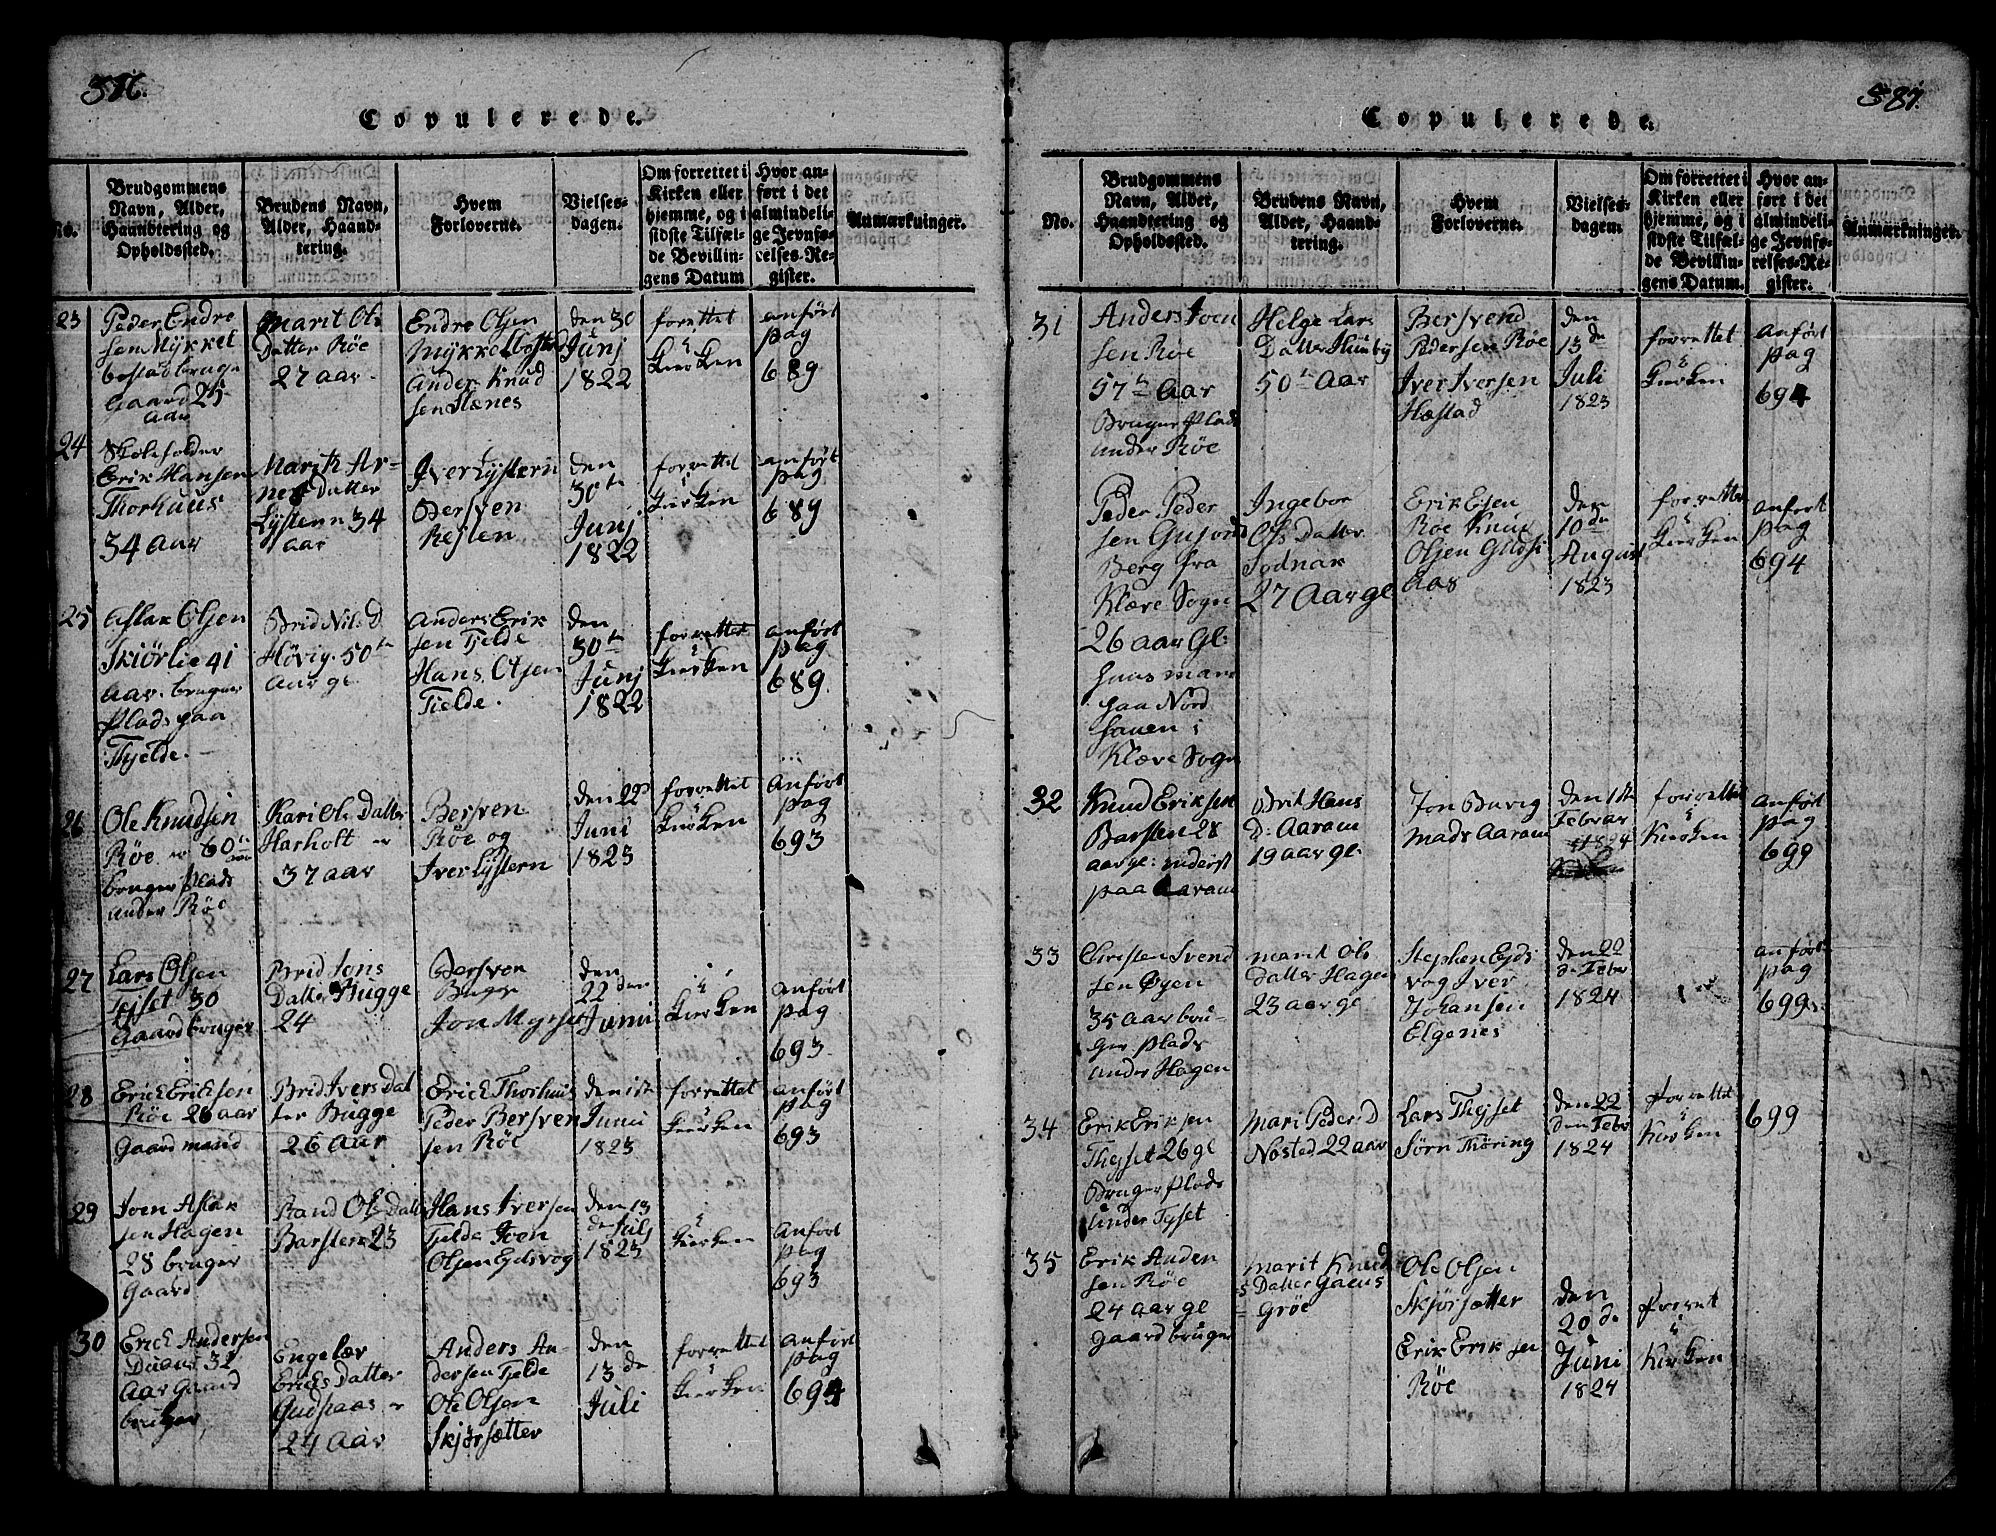 Copulerede.
No.
Brudgommens
Navn, Alder,
Haandtering og
Opholdssted.
Brudens Navn,
Alder, Haand-
tering.
Hvem
Forloverne.
Vielses-
dagen.
Om forrettet i
Kirken eller
hjemme, og i
sidste Tilfæl-
de Bevillin-
gens Datum
Hvor an-
ført i det
almindeli-
ge Jevnfø-
relses-Re-
gister.
Anmærkninger.
23
Peder Endre
sen Mykkel
bostad bruge
Gaard 25
aar
Marit Ols
Datter Röe
27 aar
Endre Olsen
Mykkelbostad
Anders Knud
sen Hænes
den 30
Junj
1822
forrettet
i
Kirken
anført
pag
689
24
Skoleholder
Erik Hansen
Thorhuus
34 aar
Marit Ar-
nes Datter
Lystenn 34
aar
Iver Lystern
Bersven
Rejten
den
30te
Junj
1822
forrettet
i
Kirken
anført
pag
689
25
Aslak Olsen
Skiørlie 41
aar. bruger
Plads paa
Thjelde.
Brid Nils D
Høvig. 50te
aar gl.
Anders Erik
sen Tjelde
Hans Olsen
Tielde.
den
30te
Junj
1822
forrettet
i
Kirken
anført
pag
689.
26
Ole Knudsen
Röe 60te
bruger Plads
under Röe
Kari Ols Datter
Harholt
37 aar
Bersven
Röe og
Iver Lystern
den 22
Juni
1823
forrettet
i
Kirken
anført
pag
693
27
Lars Olsen
Tejset 30
Gaardbruger
Brid Jons
Datter Bugge
24
Bersven
Bugge
Jon Myrset
den
22 den
Juni
i
Kirken
anført
pag
693
28
Erick Ericksen
Röe 26 aar
Gaardmand
Brid Ivers Dat
ter Bugge
26 Aar
Erick Thorhuus
Peder Bersven
sen Röe
den 1ste
Juni
1823
forrettet
i
Kirken
anført
pag
693
29
Joen Aslak
sen Hagen
28 bruger
Gaard
Rand Ols Datter
Barsten 23
Hans Iversen
Tjelde Joen
Olsen Eidsvog
den 13
de Julj
1823
i
Kirken
Anført
pag
693
30
Erick Andersen
32
Aar Gaard
bruger,
Engelær
Ericks Datter
Gudsaas
24 Aar
Anders An-
dersen Tjelde
Ole Olsen
Skjørsætter
den
13 de
Juli
forrettet
i
Kirken
Anført
pag
694
387.
Copulerede.
No.
Brudgommens
Navn, Alder,
Haandtering og
Opholdssted.
Brudens Navn,
Alder, Haand-
tering.
Hvem
Forloverne.
Vielses-
dagen.
Om forrettet i
Kirken eller
hjemme, og i
sidste Tilfæl-
de Bevillin-
gens Datum.
Hvor an-
ført i det
almindeli-
ge Jevnfø-
relses-Re-
gister.
Anmærkninger.
31
Anders Joen
sen Röe
57te Aar
Bruger Plads
under Röe
Helge Lars
Datter
50te Aar
Bersvend
Pedersen Röe
Iver Iversen
Hæstad
den
13de
Juli
1823
forrettet
i
Kirken
anført
pag
694
Peder Peder
sen
Berg fra
Klære Sogn
26 aar Gl:
Huusmand
paa Nord
hauen i
Klære Sogn
Ingebor
Ols Datter
27 Aar gl
Erik
Röe Knud
Olsen Gudsi
Aas
den
10de
August
1823
forrettet
i
Kirken
anført
pag
694
32
Knud Eriksen
Barsten 28
aar gl: inderst
paa Aaram
Brit Hans
D: Aaram
19 aar gl:
Jon Buvig
Mads Aaram
den 1ste
Februar
1824
forrettet
i
Kirken
anført
pag
699
33
Christen Svend
sen Øyen
35 aar bru-
ger Plads
under Hagen
Marit Ols
Datter Hagen
23 aar gl
Stephen Eids
vog Iver
Johansen
Elgenes
den 22
de Febr
1824
anført
pag
699
34
Erik Eriksen
Thejset 26 gl
Bruger Plads
under Tyset
Mari Peder D
Nøsted 22 aar
Lars Thejset
Sørn Thøring
den 22
den Febr
1824
forrettet
i
Kirken
699
35
Erik Anden
sen Röe
24 aar gl
Gaardbruger
Marit Knud
s Datter
Grøe
Ole Olsen
Skjørsætter
Erik Eriksen
Röe
den
20 de
Juni
1824
forret
i
Kirken